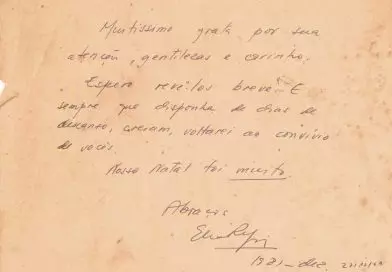 Muitissimo grata por sua
atenção, gentilezas e carinho.
Espero revê-los breve. E
sempre que disponha de dias de
descanso, creiam, voltarei ao convívio
de vocês.
Nosso Natal foi muito.
Abraços
1981 - dez.